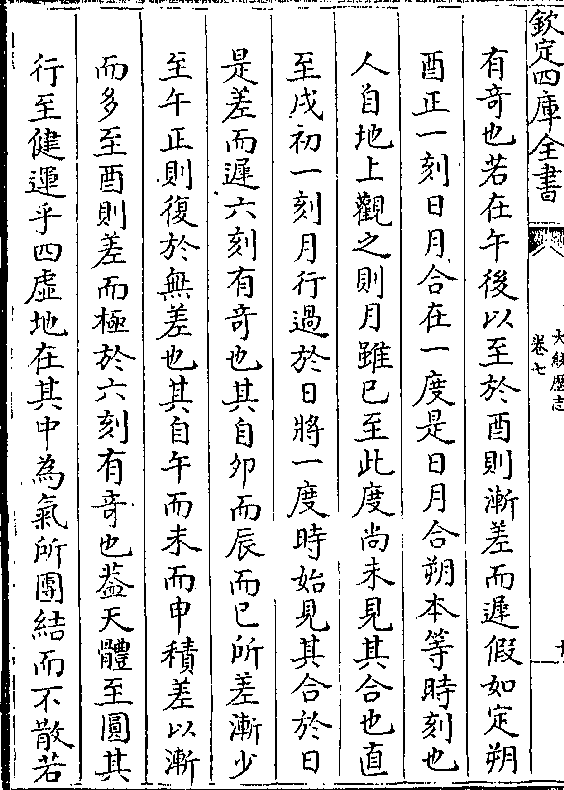 欽定四庫全書
大統歴志
卷七
有奇也若在午後以至於酉則漸差而遲假如定朔
酉正一刻日月合在一度是日月合朔本等時刻也
人自地上觀之則月雖已至此度尚未見其合也直
至戌初一刻月行過於日將一度時始見其合於日
是差而遲六刻有奇也其自卯而辰而巳所差漸少
至午正則復於無差也其自午而未而申積差以漸
而多至酉則差而極於六刻有奇也葢天體至圓其
行至健運乎四虛地在其中為氣所團結而不散若